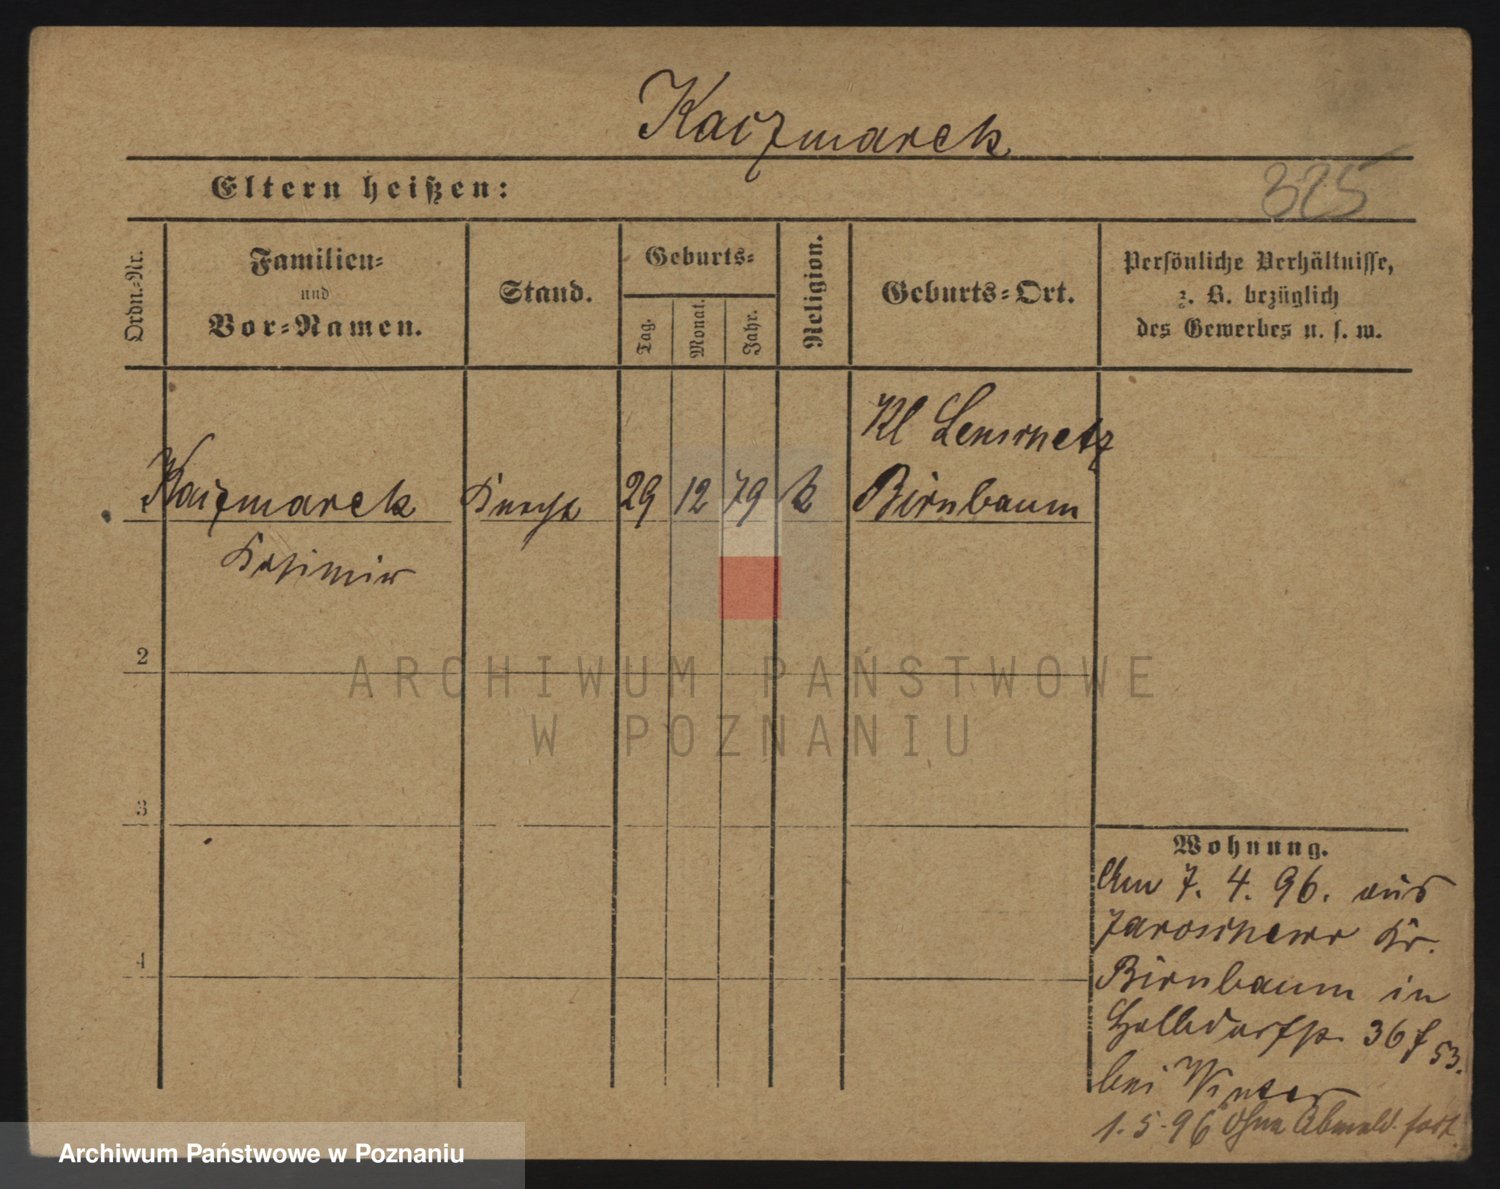 Kaczmarek
Eltern heißen:
325
Ordn.-Nr.
Familien-
und
Vor-Namen.
Stand.
Geburts-
Tag.
Monat.
Jahr.
Religion.
Geburts-Ort.
Persönliche Verhältnisse,
z. B. bezüglich
des Gewerbes u. s. w.
Kl Lenschetz
Kaczmarek Knecht 29 12 79 k Birnbaum
Kasimir
2
ARCHIWUM PAŃSTWOWE
W POZNANIU
3
Wohnung.
Am 7. 4. 96. aus
Jaroschewo Kr.
4
Birnbaum in
Halbdorfstr. 36 f 53.
bei Winter
1. 5. 96 Ohne Abmeld. fort.
Archiwum Państwowe w Poznaniu